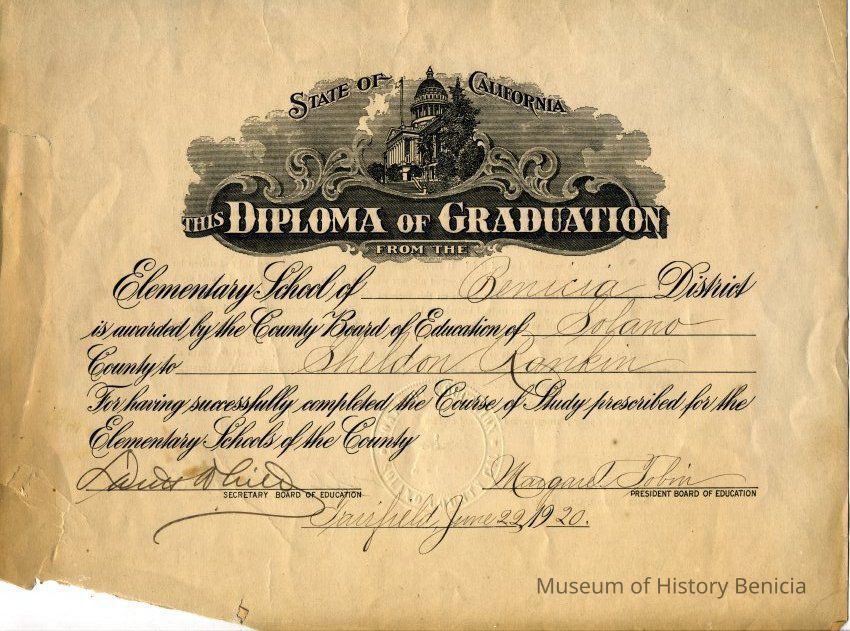 STATE OF CALIFORNIA
THIS DIPLOMA OF GRADUATION
FROM THE
Elementary School of Benicia District
is awarded by the County Board of Education of Solano
County to Sheldon Rankin
For having successfully completed the Course of Study prescribed for the
Elementary Schools of the County
Margaret Tobin
SECRETARY BOARD OF EDUCATION PRESIDENT BOARD OF EDUCATION
Fairfield, June 22, 1920.
Museum of History Benicia